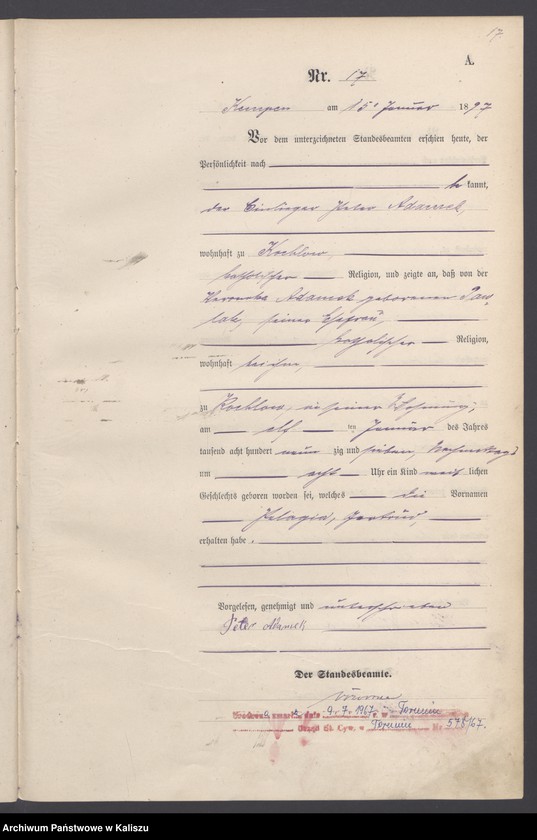 17
A.
Nr. 17
Kempen am 15. Januar 1897
Vor dem unterzeichneten Standesbeamten erschien heute, der
Persönlichkeit nach
bekannt,
der Einlieger Peter Adamek,
wohnhaft zu Kochlow,
katholischer Religion, und zeigte an, daß von der
Adamek geborenen Paw
lak, seiner Ehefrau,
katholischer Religion,
wohnhaft bei ihm,
zu Kochlow, in seiner Wohnung,
am elf ten Januar des Jahres
tausend acht hundert neun zig und sieben, Nachmittags
um acht Uhr ein Kind weib lichen
Geschlechts geboren worden sei, welches die Vornamen
Pelagia, Gertrud,
erhalten habe.
Vorgelesen, genehmigt und unterschrieben
Peter Adamek
Der Standesbeamte.
dnia 9.7.1967 r. w Toruniu
w Toruniu Nr 578/67.
Archiwum Państwowe w Kaliszu